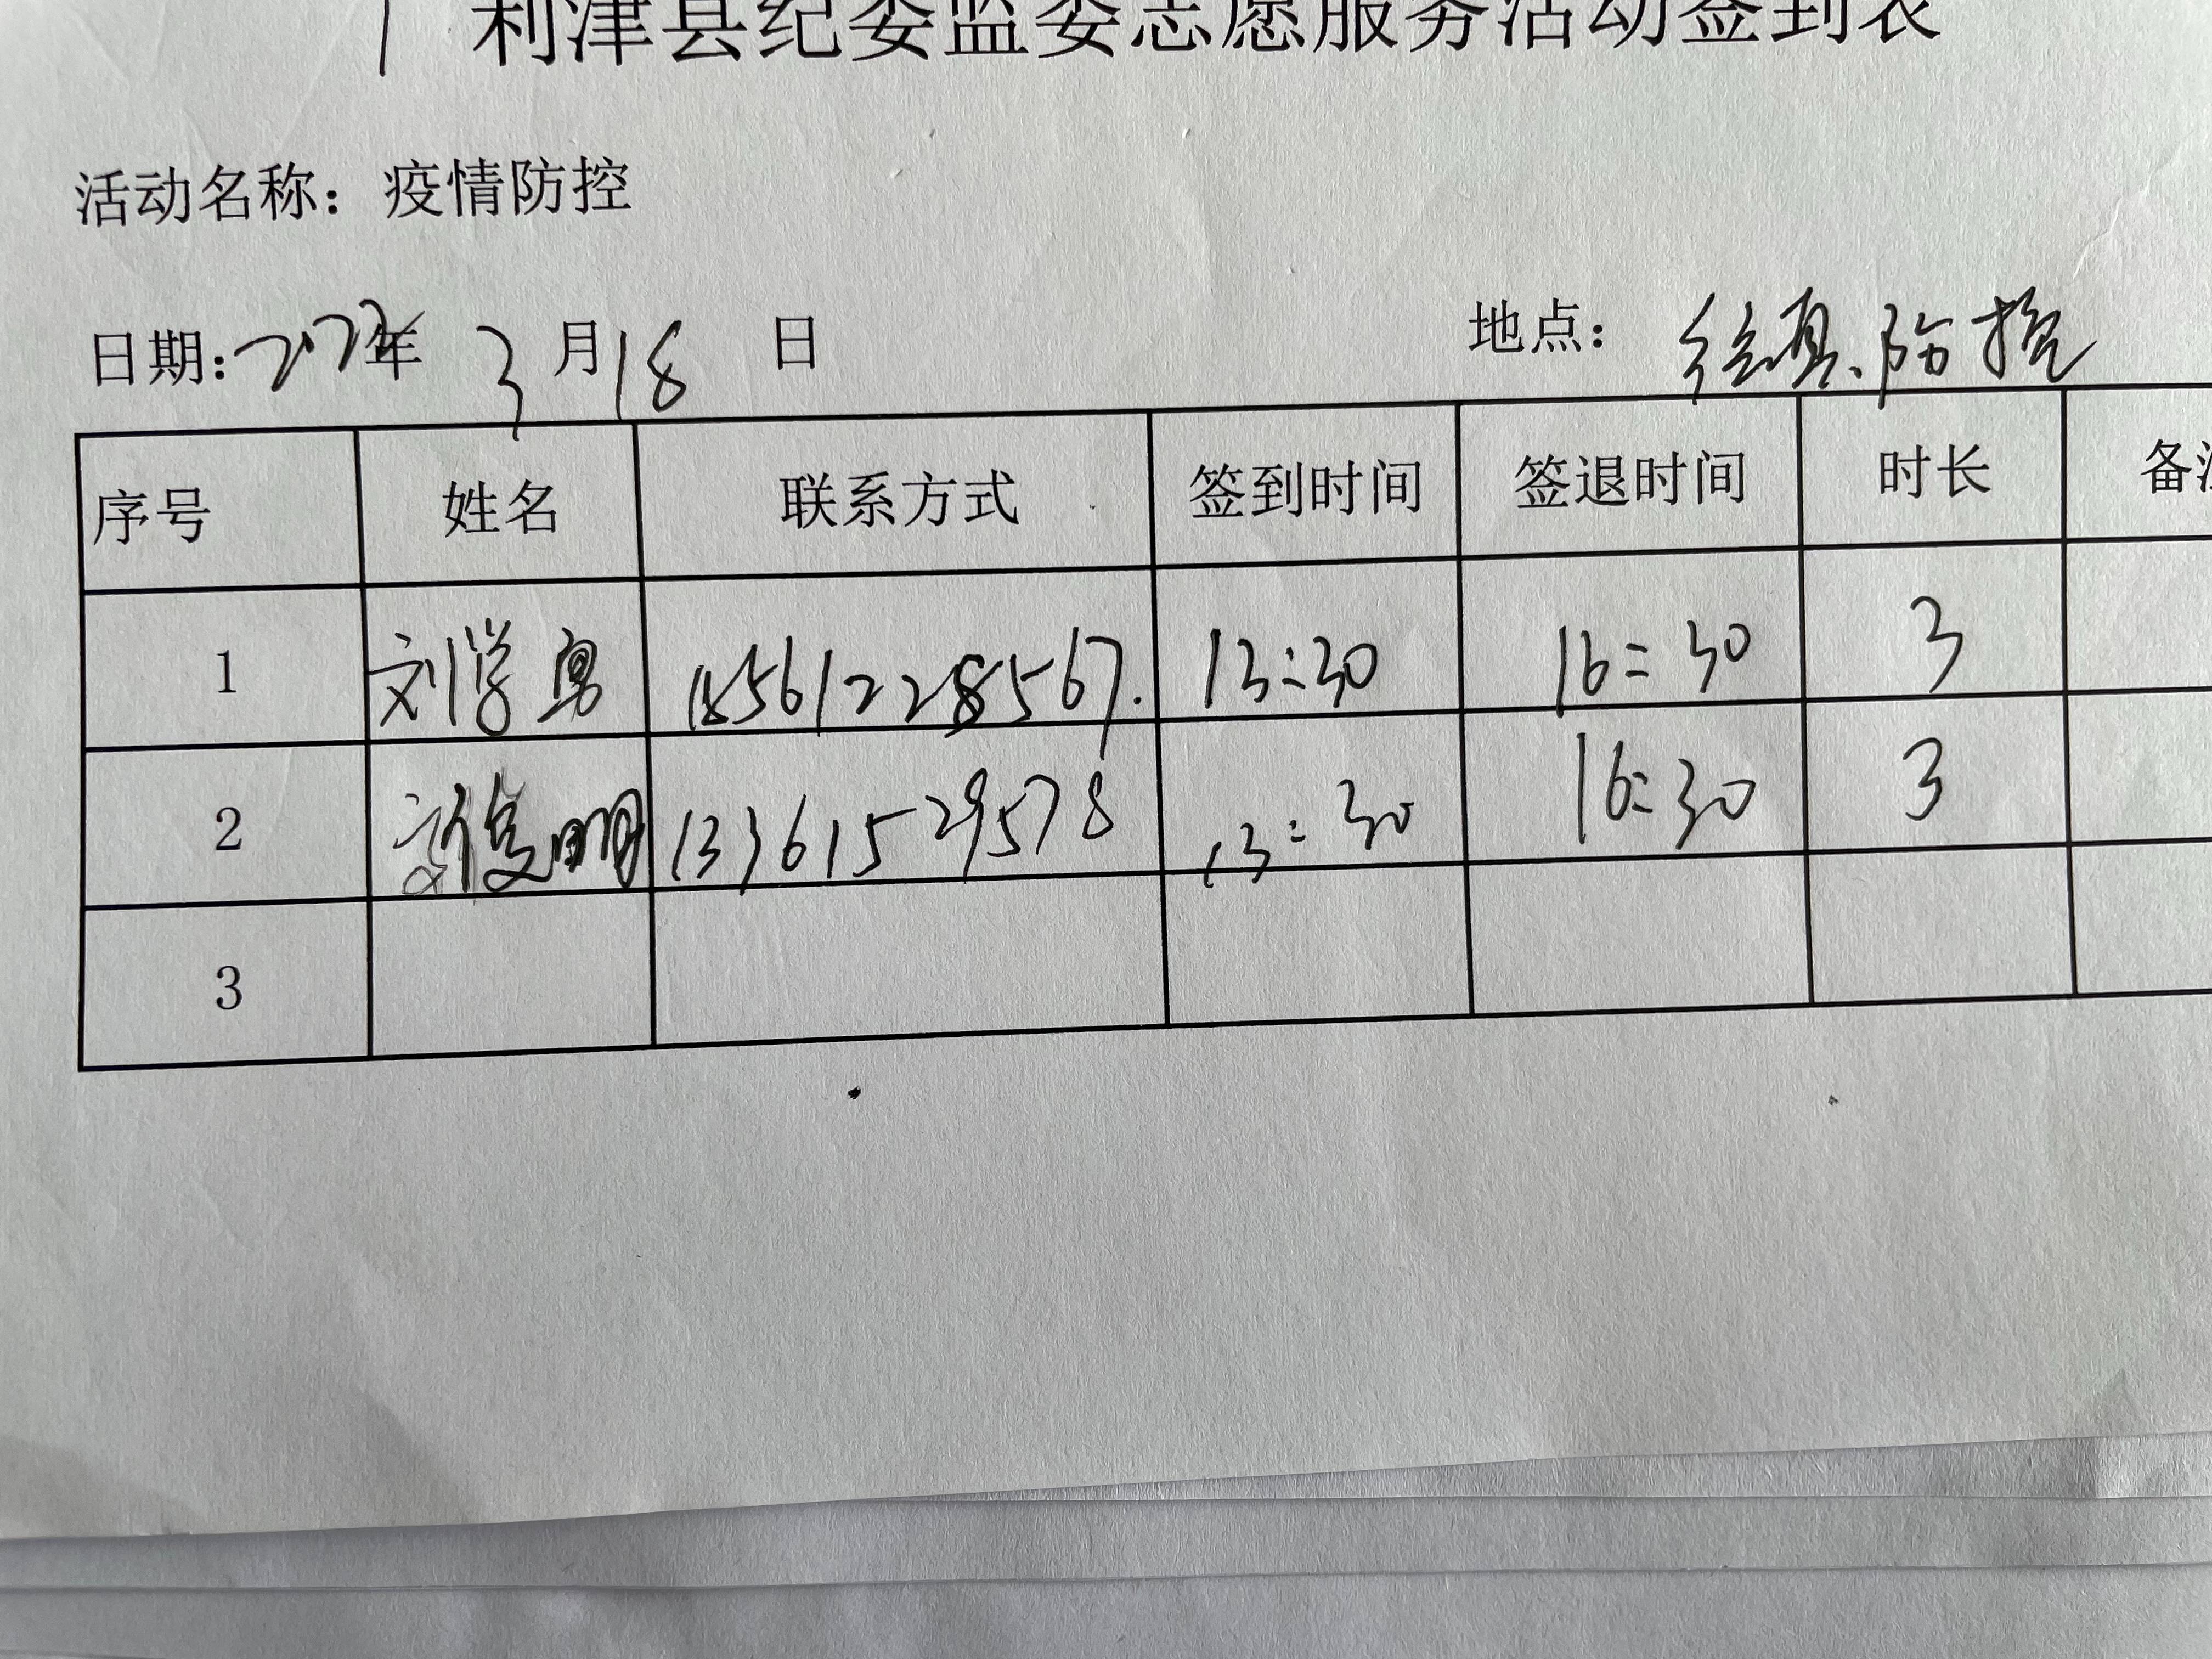 利津县纪委监委志愿服务活动签到表
活动名称：疫情防控
日期：2022年 3月18 日 地点： 防控
序号 姓名 联系方式 签到时间 签退时间 时长 备注
1 刘学勇 18561228567. 13:30 16:30 3
2 13361529578 13:30 16:30 3
3